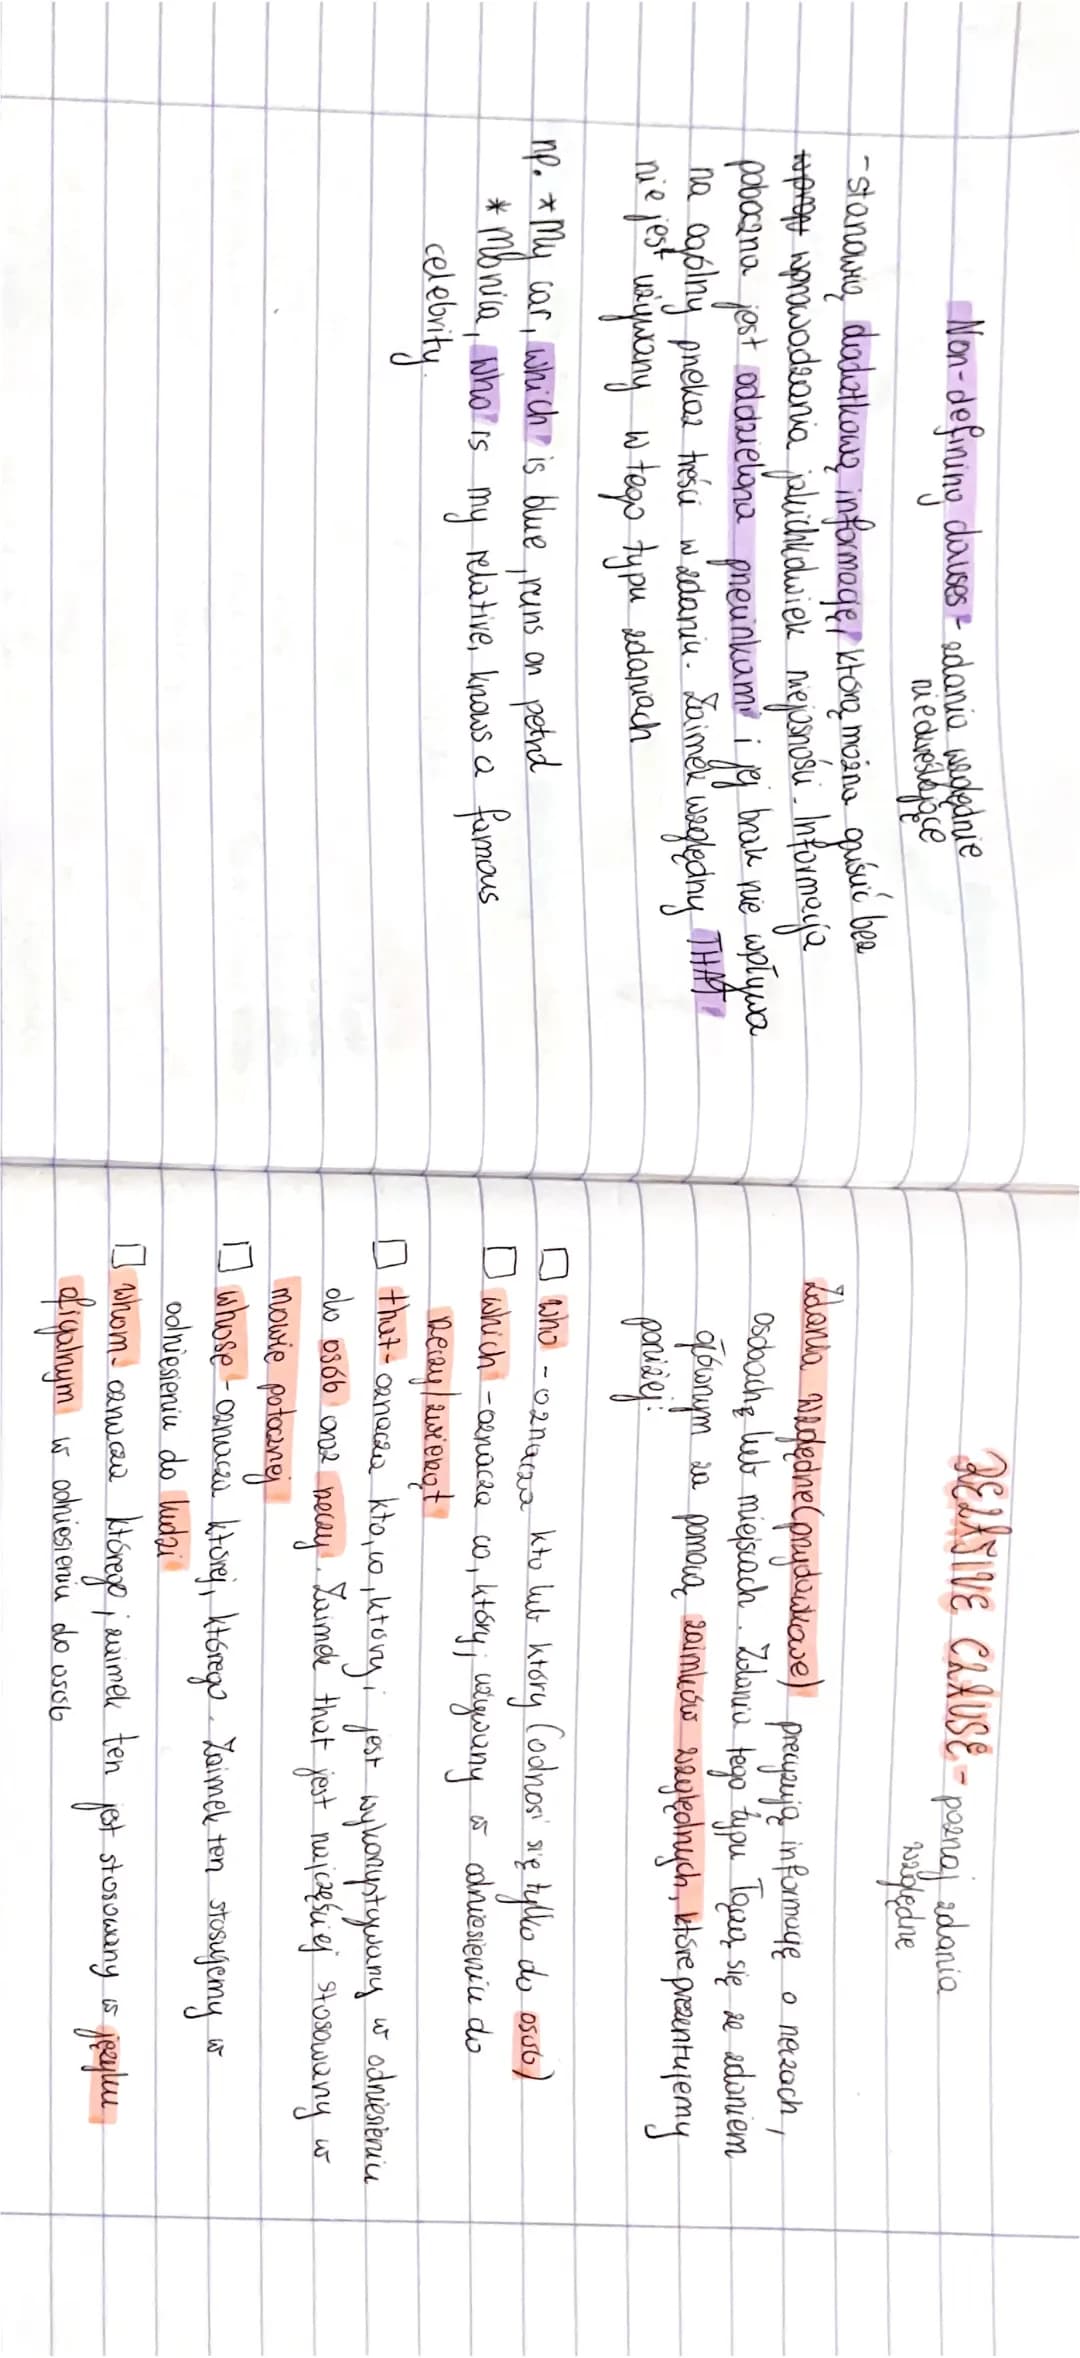 Non-defining clauses - zdania względnie
niedkreślające
- stanowią dodatkową informację, którą można opuścić bez
wprowadzania jakichkolwiek niejasności. Informacja
poboczna jest oddzielona przecinkami i jej brak nie wpływa
na ogólny przekaz treści w zdaniu. Zaimek względny THAT
nie jest używany w tego typu zdaniach
np. * My car, which is blue, runs on petrol
* Monica, who is my relative, knows a famous
celebrity.
RELATIVE CLAUSE - poznaj zdania
względne
Zdania względne (przydawkowe) precyzują informację o rzeczach,
osobach lub miejscach. Zdania tego typu łączą się ze zdaniem
głównym za pomocą zaimków względnych, które prezentujemy
poniżej:
□ who - oznacza kto lub który (odnosi się tylko do osób)
□ which - oznacza co, który; używany w odniesieniu do
rzeczy/zwierząt
□ that - oznacza kto, co, który; jest wykorzystywany w odniesieniu
do osób oraz rzeczy. Zaimek that jest najczęściej stosowany w
mowie potocznej
□ whose - oznacza której, którego. Zaimek ten stosujemy w
odniesieniu do ludzi
□ whom - oznacza którego; zaimek ten jest stosowany w języku
oficjalnym w odniesieniu do osób